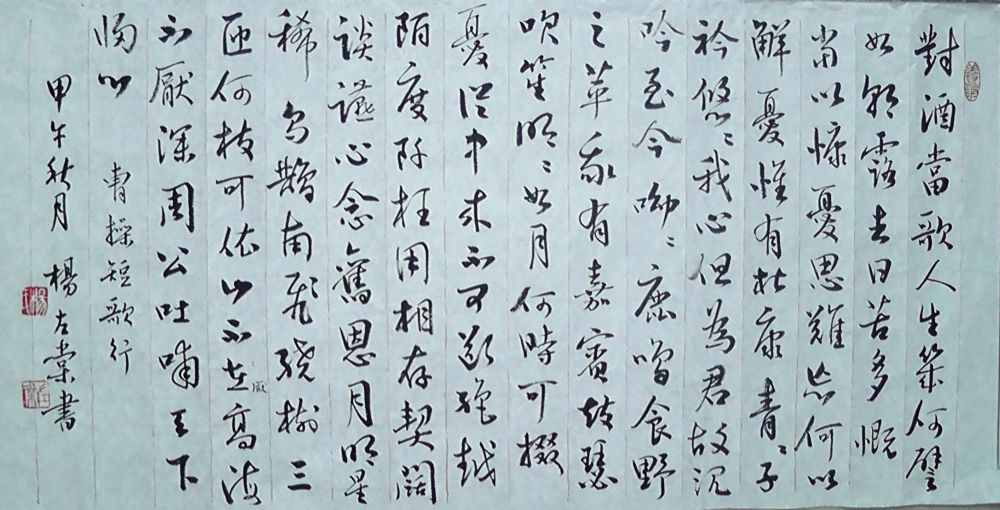 對酒當歌人生幾何譬
如朝露去日苦多慨
當以慷憂思難忘何以
解憂惟有杜康青〻子
衿悠〻我心但為君故沉
吟至今呦〻鹿鳴食野
之苹我有嘉賓鼓瑟
吹笙明〻如月何時可掇
憂從中來不可斷絶越
陌度阡枉用相存契闊
談讌心念舊恩月明星
稀 烏鵲南飛繞樹三
匝何枝可依山不在厭高海
不厭深周公吐哺天下
歸心 曹操短歌行
甲午秋月 楊左棠書